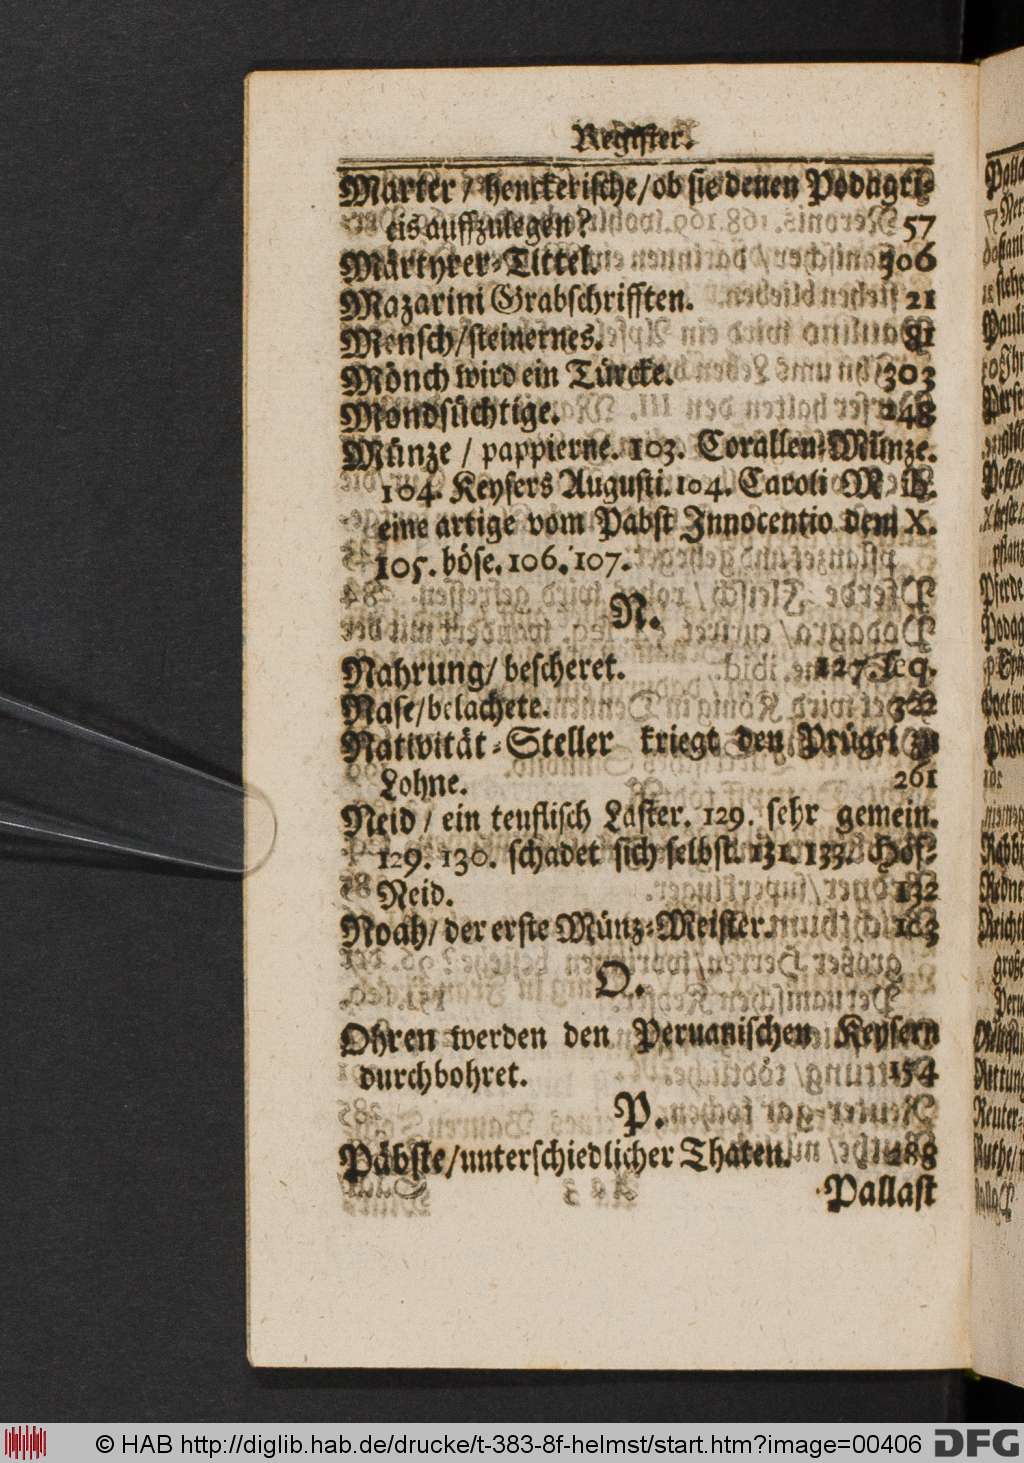 Register.
Marter / henckerische/ob sie denen Podagri-
cis auffzulegen? 57
Märtyrer-Tittel. 306
Mazarini Grabschrifften. 21
Mensch/steinernes. 81
Mönch wird ein Türcke. 303
Mondsüchtige. 248
Münze / pappierne. 103. Corallen-Münze.
104. Keysers Augusti. 104. Caroli M. ib.
eine artige vom Pabst Innocentio dem X.
105. böse. 106. 107.
N.
Nahrung/ bescheret. 127. seq.
Nase/belachete. 322
Nativität-Steller kriegt den Prügel zu
Lohne. 261
Neid / ein teuflisch Laster. 129. sehr gemein.
129. 130. schadet sich selbst. 131. 133. Hof-
Neid. 132
Noah/ der erste Münz-Meister. 103
O.
Ohren werden den Peruanischen Keysern
durchbohret. 154
P.
Päbste/unterschiedlicher Thaten. 288
Pallast
© HAB http://diglib.hab.de/drucke/t-383-8f-helmst/start.htm?image=00406
DFG